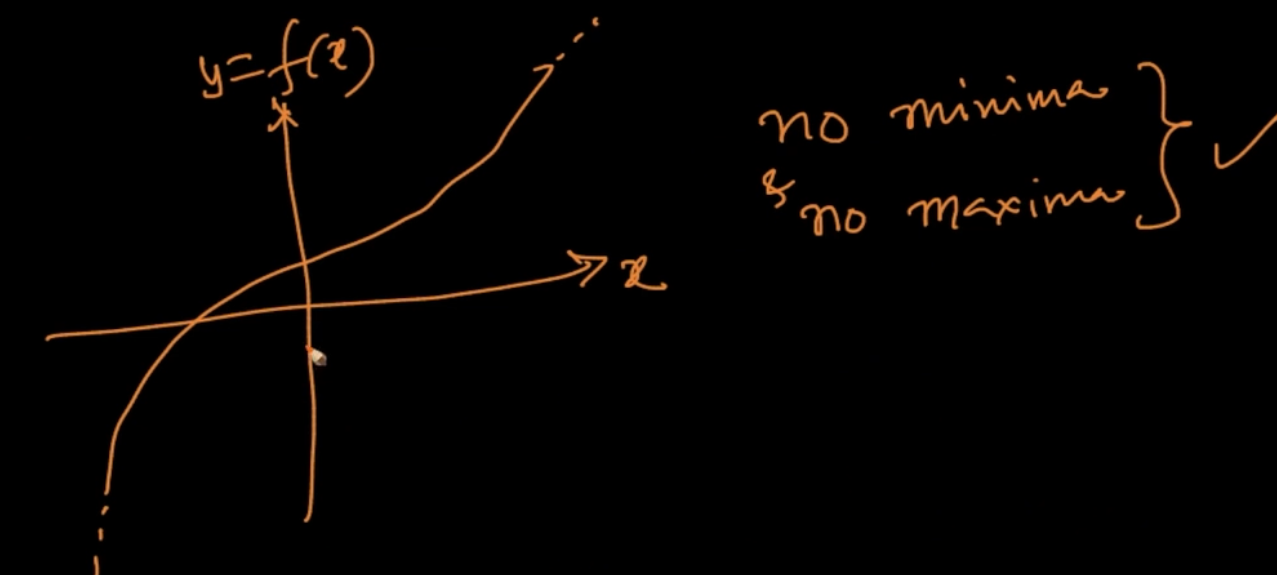 y=f(x)
x
no minima
& no maxima